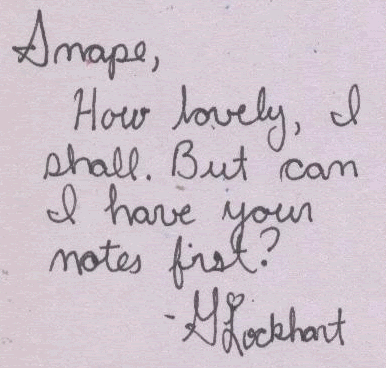 Snape,
How lovely, I
shall. But can
I have your
notes first?
-GLockhart